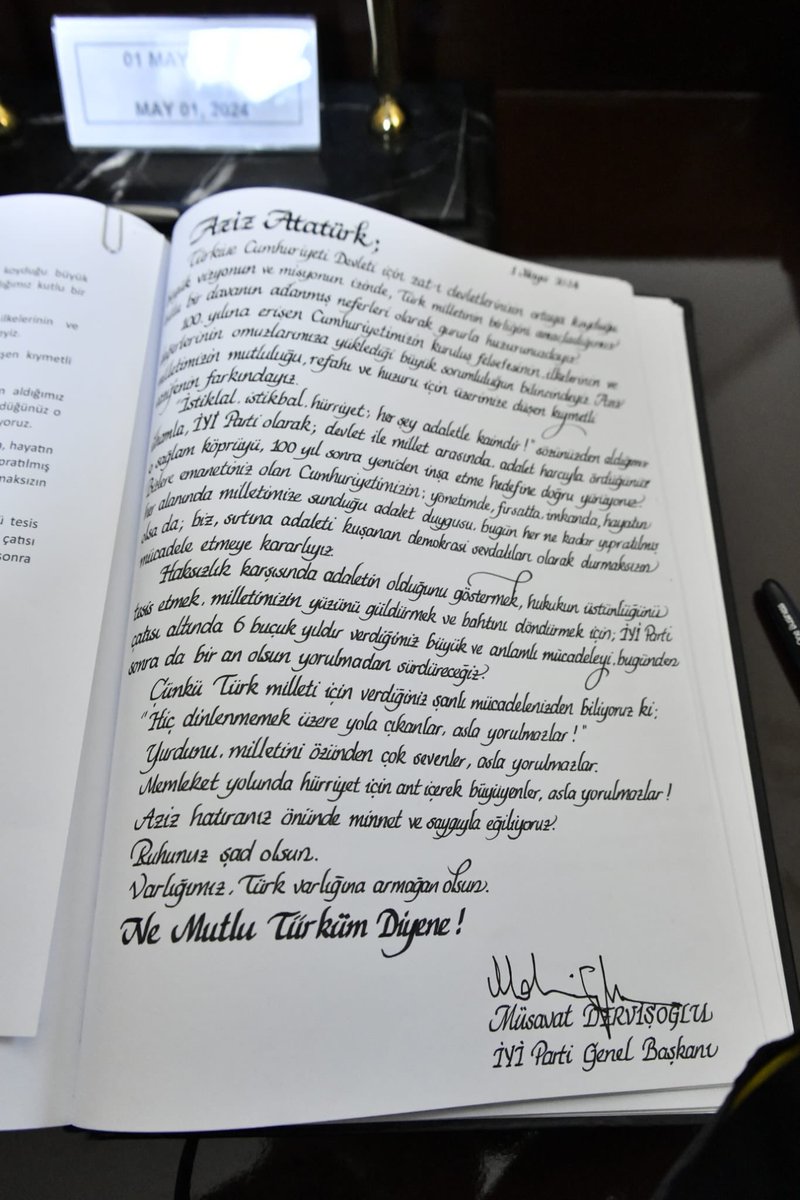 01 MAY
MAY 01, 2024
koyduğu büyük
kutlu bir
ilkelerinin ve
kıymetli
aldığımız
o
hayatın
yıpratılmış
tesis
çatısı
sonra
Aziz Atatürk;
1 Mayıs 2024
Türkiye Cumhuriyeti Devleti için zat-ı devletlerinizin ortaya koyduğu
büyük vizyonun ve misyonun izinde, Türk milletinin birliğini amaçladığımız
kutlu bir davanın adanmış neferleri olarak gururla huzurunuzdayız.
100. yılına erişen Cumhuriyetimizin kuruluş felsefesinin, ilkelerinin ve
değerlerinin omuzlarımıza yüklediği büyük sorumluluğun bilincindeyiz. Aziz
milletimizin mutluluğu, refahı ve huzuru için üzerimize düşen kıymetli
vazifenin farkındayız.
"İstiklal, istikbal, hürriyet; her şey adaletle kaimdir!" sözünüzden aldığımız
ilhamla, İYİ Parti olarak; devlet ile millet arasında, adalet harcıyla ördüğünüz
o sağlam köprüyü, 100 yıl sonra yeniden inşa etme hedefine doğru yürüyoruz.
Bizlere emanetiniz olan Cumhuriyetimizin; yönetimde, fırsatta, imkanda, hayatın
her alanında milletimize sunduğu adalet duygusu, bugün her ne kadar yıpratılmış
olsa da; biz, sırtına adaleti kuşanan demokrasi sevdalıları olarak durmaksızın
mücadele etmeye kararlıyız.
Haksızlık karşısında adaletin olduğunu göstermek, hukukun üstünlüğünü
tesis etmek, milletimizin yüzünü güldürmek ve bahtını döndürmek için; İYİ Parti
çatısı altında 6 buçuk yıldır verdiğimiz büyük ve anlamlı mücadeleyi, bugünden
sonra da bir an olsun yorulmadan sürdüreceğiz.
Çünkü Türk milleti için verdiğiniz şanlı mücadelenizden biliyoruz ki;
"Hiç dinlenmemek üzere yola çıkanlar, asla yorulmazlar!"
Yurdunu, milletini özünden çok sevenler, asla yorulmazlar.
Memleket yolunda hürriyet için ant içerek büyüyenler, asla yorulmazlar!
Aziz hatıranız önünde minnet ve saygıyla eğiliyoruz.
Ruhunuz şad olsun.
Varlığımız, Türk varlığına armağan olsun.
Ne Mutlu Türküm Diyene!
Müsavat DERVİŞOĞLU
İYİ Parti Genel Başkanı